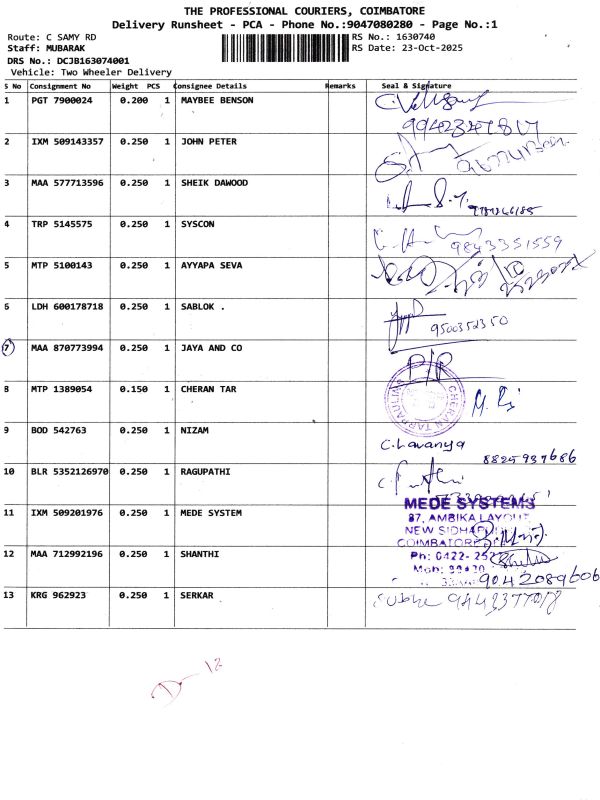 THE PROFESSIONAL COURIERS, COIMBATORE
Delivery Runsheet - PCA - Phone No.:9047080280 - Page No.:1
Route: C SAMY RD
RS No.: 1630740
Staff: MUBARAK
RS Date: 23-Oct-2025
DRS No.: DCJB163074001
Vehicle: Two Wheeler Delivery
S No Consignment No Weight PCS Consignee Details Remarks Seal & Signature
1 PGT 7900024 0.200 1 MAYBEE BENSON
2 IXM 509143357 0.250 1 JOHN PETER
3 MAA 577713596 0.250 1 SHEIK DAWOOD
4 TRP 5145575 0.250 1 SYSCON 9843351559
5 MTP 5100143 0.250 1 AYYAPA SEVA
6 LDH 600178718 0.250 1 SABLOK . 9500352350
7 MAA 870773994 0.250 1 JAYA AND CO D/R
8 MTP 1389054 0.150 1 CHERAN TAR CHERAN TARPAULIN
9 BOD 542763 0.250 1 NIZAM C.Lavanya 8825937686
10 BLR 5352126970 0.250 1 RAGUPATHI
11 IXM 509201976 0.250 1 MEDE SYSTEM
MEDE SYSTEMS
87, AMBIKA LAYOUT,
NEW SIDHAPU
COIMBATORE
Ph: 0422-252
12 MAA 712992196 0.250 1 SHANTHI 9042089606
13 KRG 962923 0.250 1 SERKAR
D-12